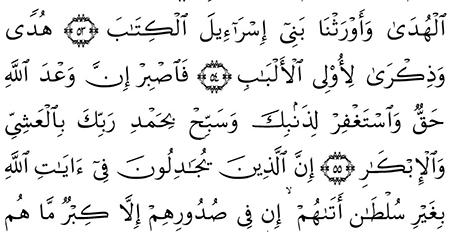 ٱلْهُدَىٰ وَأَوْرَثْنَا بَنِىٓ إِسْرَٰٓءِيلَ ٱلْكِتَٰبَ ﴿٥٣﴾ هُدًى
وَذِكْرَىٰ لِأُو۟لِى ٱلْأَلْبَٰبِ ﴿٥٤﴾ فَٱصْبِرْ إِنَّ وَعْدَ ٱللَّهِ
حَقٌّ وَٱسْتَغْفِرْ لِذَنۢبِكَ وَسَبِّحْ بِحَمْدِ رَبِّكَ بِٱلْعَشِىِّ
وَٱلْإِبْكَٰرِ ﴿٥٥﴾ إِنَّ ٱلَّذِينَ يُجَٰدِلُونَ فِىٓ ءَايَٰتِ ٱللَّهِ
بِغَيْرِ سُلْطَٰنٍ أَتَىٰهُمْ ۙ إِن فِى صُدُورِهِمْ إِلَّا كِبْرٌ مَّا هُم